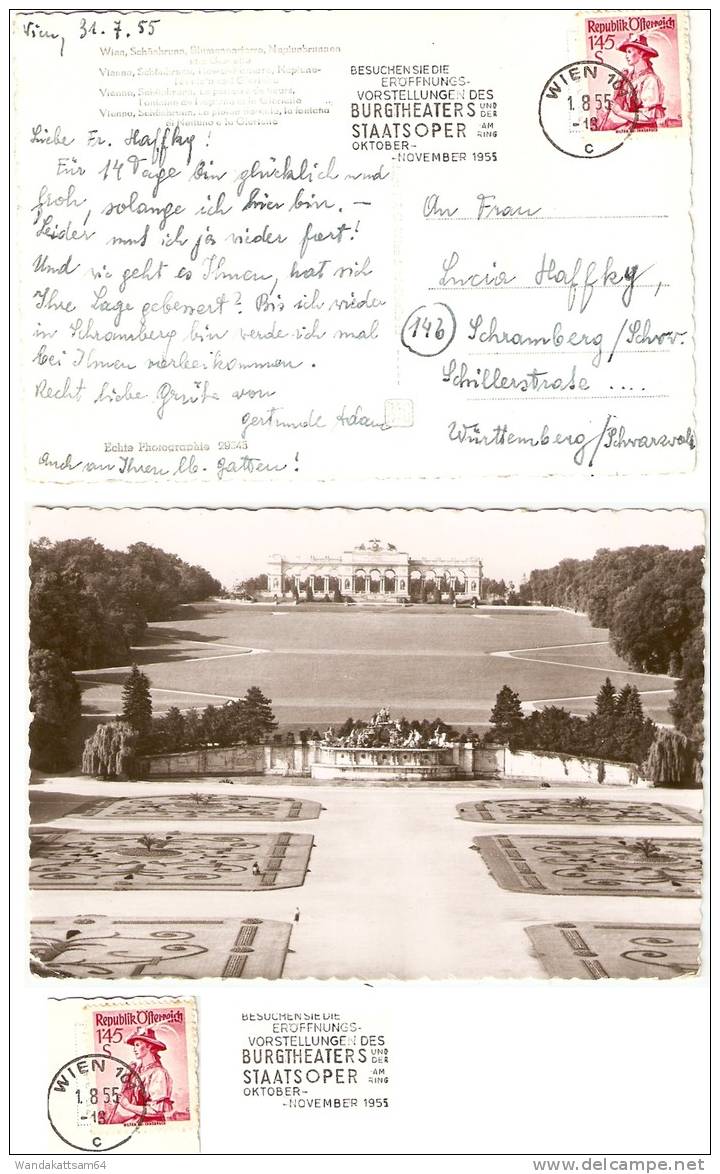 Wien, 31.7.55
Wien, Schönbrunn, Blumenparterre, Neptunbrunnen
mit Gloriette
Vienna, Schönbrunn,
Neptune-
Vienne, Schönbrunn, Le parterre de fleurs,
Fontaine de Neptune et la Gloriette
Vienna, Schönbrunn, la fontana
di Nettuno e la Gloriette
Liebe Fr. Haffky!
Für 14 Tage bin glücklich und
froh, solange ich hier bin. —
Leider muß ich ja wieder fort!
Und wie geht es Ihnen, hat sich
Ihre Lage gebessert? Bis ich wieder
in Schramberg bin werde ich mal
bei Ihnen vorbeikommen.
Recht liebe Grüße von
Gertrude Adam
Echte Photographie 29245
Auch an Ihren lb. Gatten!
BESUCHEN SIE DIE
ERÖFFNUNGS-
VORSTELLUNGEN DES
BURGTHEATERS UND DER
STAATSOPER AM RING
OKTOBER-
-NOVEMBER 1955
Republik Österreich
1'45
S
WIEN 10
1.8.55
C
An Frau
Lucia Haffky,
14b Schramberg/Schw.
Schillerstraße ....
Württemberg/Schwarzwald
Republik Österreich
1'45
S
WIEN 10
1.8.55
C
BESUCHEN SIE DIE
ERÖFFNUNGS-
VORSTELLUNGEN DES
BURGTHEATERS UND DER
STAATSOPER AM RING
OKTOBER-
-NOVEMBER 1955
Wandakattsam64